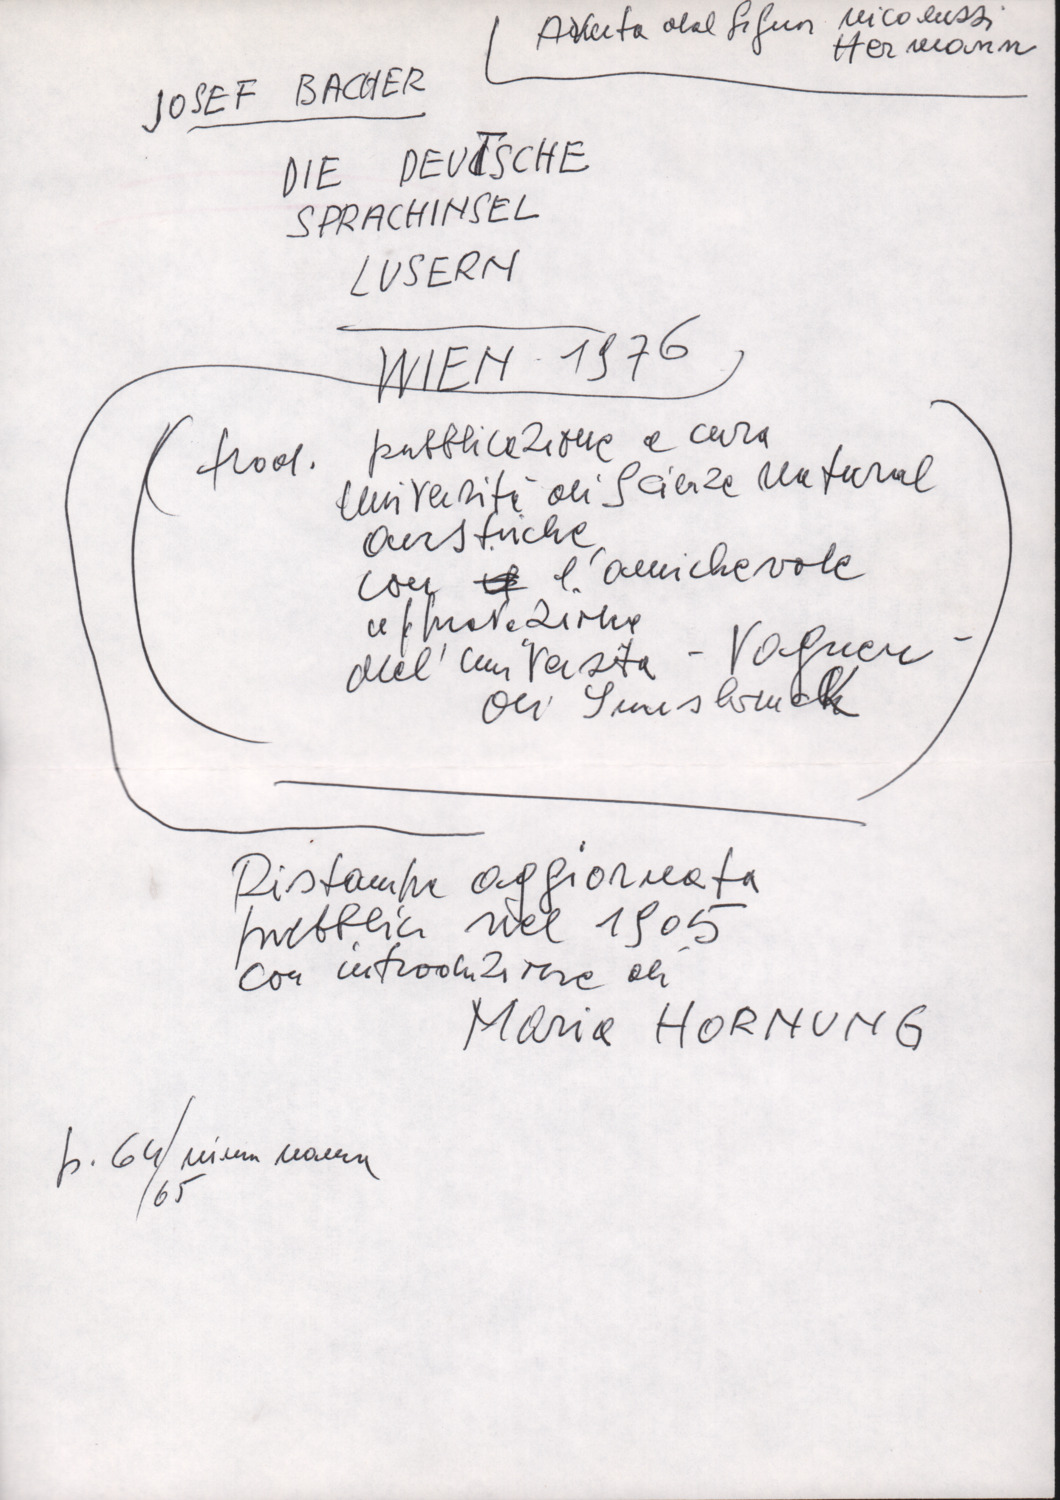 Avuta dal Signor Nicolussi
Hermann
JOSEF BACHER
DIE DEUTSCHE
SPRACHINSEL
LUSERN
WIEN 1976
trad. pubblicazione a cura
università di Scienze natural
austriche
con l'amichevole
approvazione
dell'università - Vagner -
di Innsbruck
Ristampa aggiornata
pubblic nel 1905
con introduzione di
Maria HORNUNG
p. 64/ ninna nanna
/65